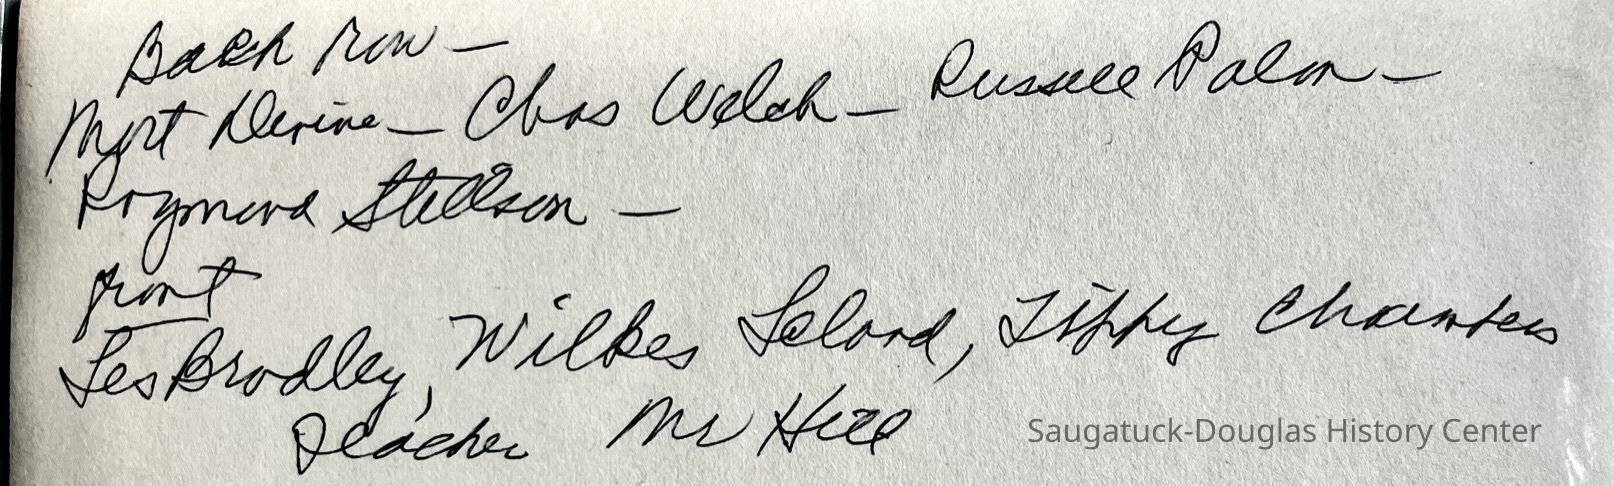 Back row —
Mort Devine — Chas Welch — Russell Palm —
Raymond Stellson —
front
Les Bradley, Wilkes Leland, Tippy Chambers
Teacher Mr Hill
Saugatuck-Douglas History Center